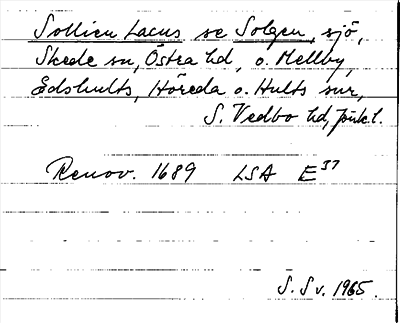 Sollien Lacus se Solgen, sjö,
Skede sn, Östra hd, o. Mellby,
Edshults, Höreda o. Hults snr,
S. Vedbo hd, Jönk. l.
Renov. 1689 LSA E 37
S. Sv. 1965.